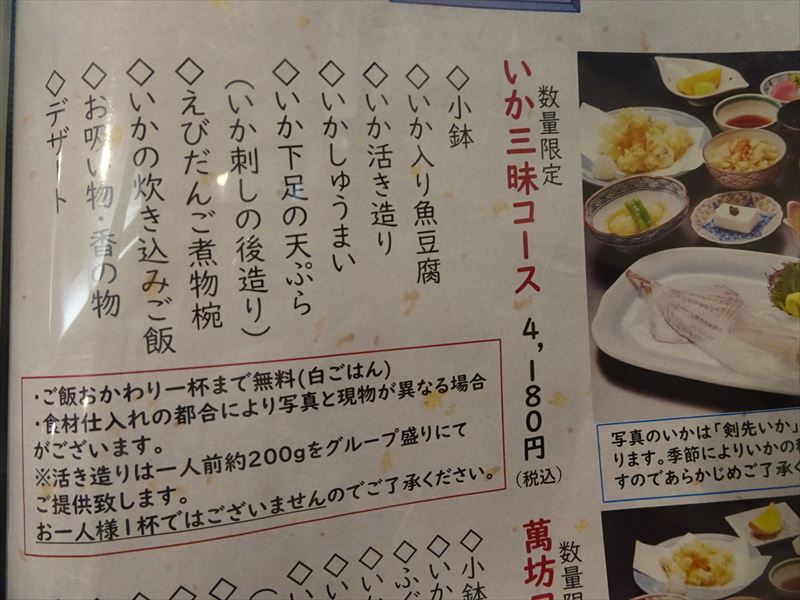 数量限定
いか三昧コース 4,180円
(税込)
◇小鉢
◇いか入り魚豆腐
◇いか活き造り
◇いかしゅうまい
◇いか下足の天ぷら
(いか刺しの後造り)
◇えびだんご煮物椀
◇いかの炊き込みご飯
◇お吸い物・香の物
◇デザート
・ご飯おかわり一杯まで無料(白ごはん)
・食材仕入れの都合により写真と現物が異なる場合
がございます。
※活き造りは一人前約200gをグループ盛りにて
ご提供致します。
お一人様1杯ではございませんのでご了承ください。
写真のいかは「剣先いか」
ります。季節によりいかの
すのであらかじめご了承く
数量限
萬坊
◇小鉢
◇いか
◇ふぐ
◇いか
◇い
◇い